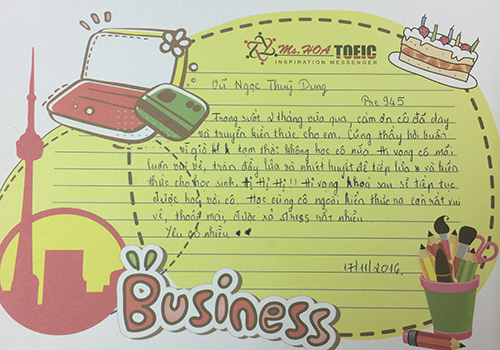 Ms.HOA TOEIC
INSPIRATION MESSENGER
Vũ Ngọc Thuỳ Dung
Pre 945
Trong suốt 2 tháng vừa qua, cảm ơn cô đã dạy
và truyền kiến thức cho em. Cũng thấy hơi buồn
vì giờ tạm thời không học cô nữa. Hi vọng cô mãi
luôn vui vẻ, tràn đầy lửa và nhiệt huyết để tiếp lửa và kiến
thức cho học sinh. Hi vọng khoá sau sẽ tiếp tục
được học với cô. Học cùng cô ngoài kiến thức ra còn rất vui
vẻ, thoải mái, được xả stress rất nhiều
Yêu cô nhiều
17/11/2016.
Business